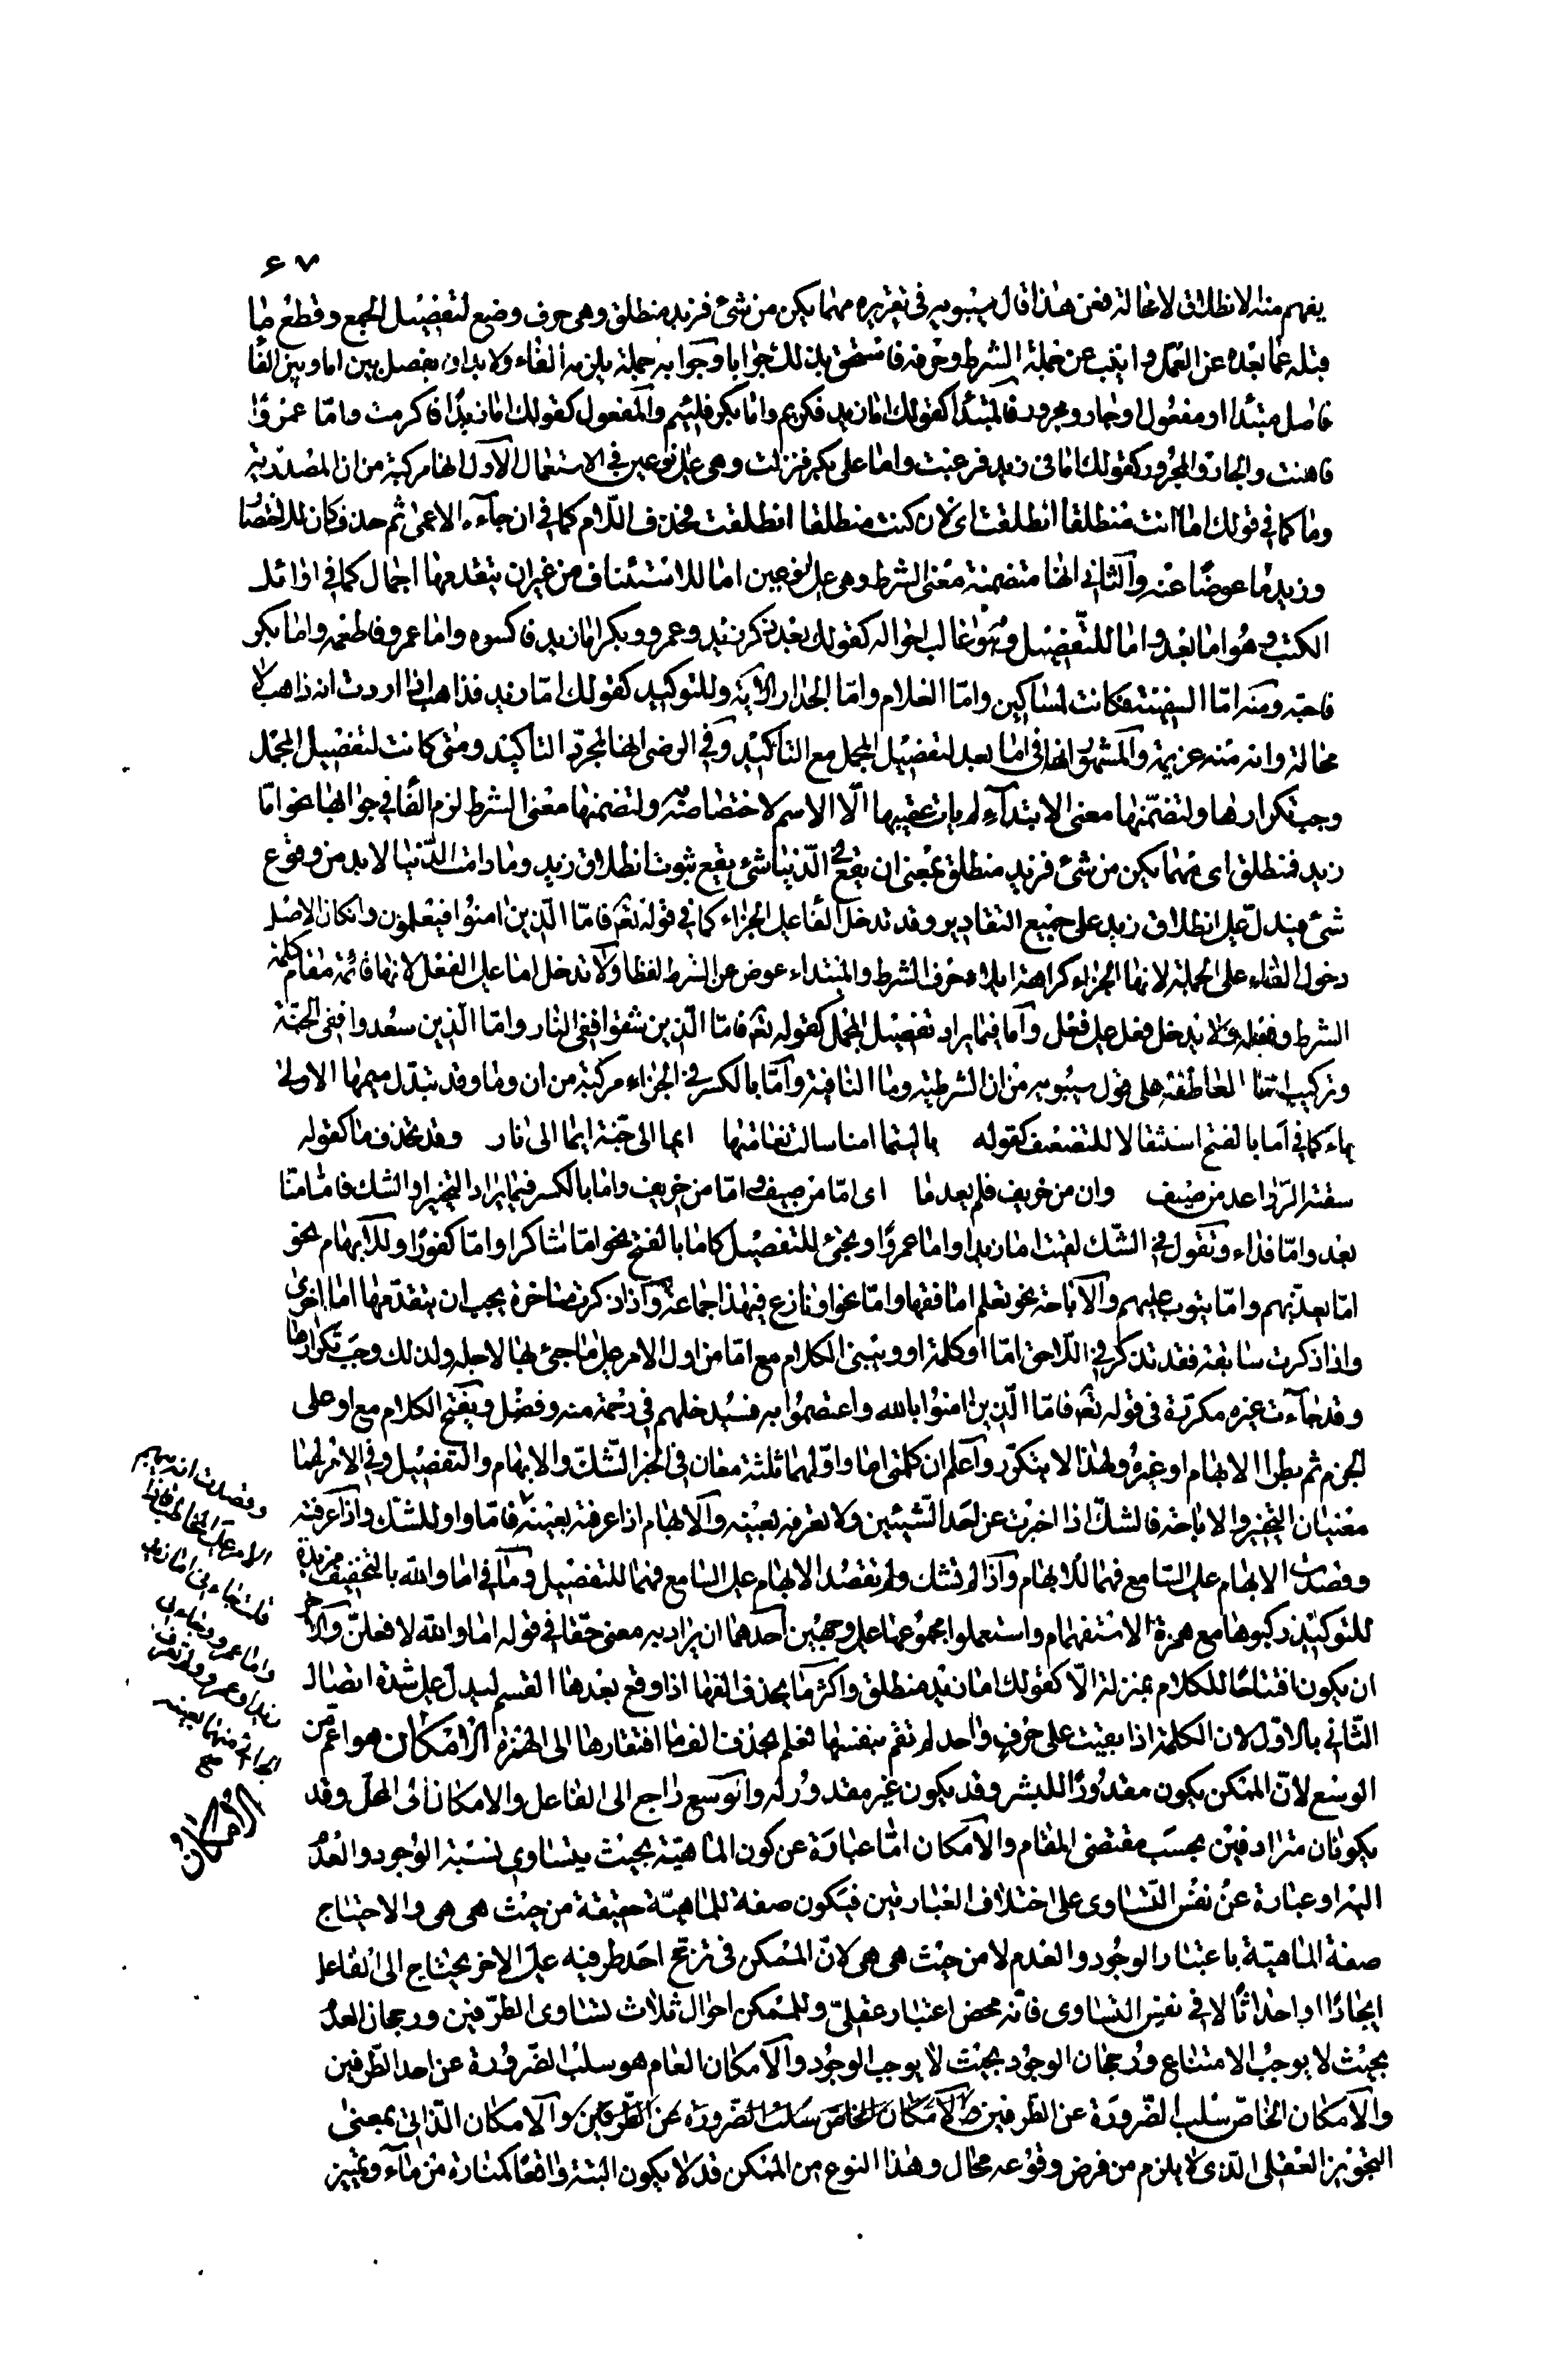 ۶۷
يفهم منه الانطلاق لا محالة فعن هذا قال سيبويه فى تقريره مهما يكن من شئ فزيد منطلق وهى حرف وضع لتفصيل الجمع وقطع ما
قبله عما بعده عن العمل وانيب عن جملة الشرط وحرفه فاستحق بذلك جوابا وجوابه جملة يلزمه الفاء ولا بد ان يفصل بين اما وبين الفا
فاصل مبتدا او مفعول او جار ومجرور فالمبتدا كقولك اما زيد فكريم واما بكر فلئيم والمفعول كقولك اما زيدًا فاكرمت وامّا عمروًا
فاهنت والجار والمجرور كقولك اما فى زيد فرغبت واما على بكر فنزلت وهى على نوعين فى الاستعمال الاول انها مركبة من ان المصدرية
وما كما فى قولك اما انت منطلقا انطلقت اى لان كنت منطلقا انطلقت فحذف اللام كما فى ان جاءه الاعمى ثم حذف كان للاختصا
وزيد ما عوضًا عنه والثانى انها متضمنة معنى الشرط وهى على نوعين اما للاستئناف من غير ان يتقدمها اجمال كما فى اوائل
الكتب وهو اما بعد واما للتفصيل وهو غالب احواله كقولك بعد ذكر زيد وعمرو وبكر اما زيد فاكسوه واما عمرو فاطعمه واما بكر
فاحبه ومنه امّا السفينة فكانت لمساكين وامّا الغلام وامّا الجدار الاية وللتوكيد كقولك امّا زيد فذاهب اذا اردت انه ذاهب لا
محالة وانه منه عزيمة والمشهور انها فى اما بعد لتفصيل المجمل مع التاكيد وفى الرضى انها لمجرد التاكيد ومتى كانت لتفصيل المجمل
وجب تكرارها ولتضمّنها معنى الابتداء لم يات عقيبها الّا الاسم لاختصاصه به ولتضمنها معنى الشرط لزم الفا فى جوابها نحو امّا
زيد فمنطلق اى مهما يكن من شئ فزيد منطلق بمعنى ان يقع فى الدّنيا شئ يقع ثبوت انطلاق زيد وما دامت الدّنيا لا بد من وقوع
شئ فيدل على انطلاق زيد على جميع التقادير وقد تدخل الفا على الجزاء كما فى قوله تعٰ فامّا الّذين امنوا فيعلمون وانكان الاصل
دخول الفاء على الجملة لانها الجزاء كراهة ايلاء حرف الشرط والمبتداء عوض عن الشرط لفظا ولا تدخل اما على الفعل لانها قائمة مقام كلمة
الشرط وفعله ولا يدخل فعل على فعل واما فيما يراد تفصيل المجمل كقوله تعٰ فامّا الّذين شقوا ففى النار وامّا الّذين سعدوا ففى الجنّة
وتركيب امّا العاطفة على قول سيبويه من ان الشرطية وما النافية وامّا بالكسر فى الجزاء مركبة من ان وما وقد تبدل ميمها الاولى
ياء كما فى اما بالفتح استثقالا للتضعيف كقوله يا ليتما امنا سالت نعامتها ايما الى جنة ايما الى نار وقد تحذف ما كقوله
سقته الرّواعد من صيف وان من خريف فلم يعدما اى امّا من صيف وامّا من خريف واما بالكسر فيما يراد التخيير او الشك فامّا منّا
بعد وامّا فداء وتقول فى الشّك لقيت اما زيدا واما عمروًا ويجئ للتفصيل كاما بالفتح نحو امّا شاكرا وامّا كفورًا وللابهام نحو
امّا يعذّبهم وامّا يتوب عليهم والاباحة نحو تعلم اما فقها وامّا نحوا ونازع فى هذا جماعة واذا ذكرت متاخرة يجب ان يتقدّمها اما اخرى
واذا ذكرت سابقة فقد تذكر فى اللاحق امّا او كلمة او ويبنى الكلام مع امّا من اول الامر على ما جئ بها لاجله ولذلك وجب تكرارها
وقد جاءت غير مكررة فى قوله تعٰ فامّا الّذين امنوا بالله واعتصموا به فسيدخلهم فى رحمة منه وفضل ويفتح الكلام مع او على
الجزم ثم يطرا الابهام او غيره ولهذا لا يتكرّر واعلم ان كلمتى اما واو لهما ثلثة معان فى الخبر الشّك والابهام والتفصيل وفى الامر لهما
معنيان التخيير والاباحة فالشك اذا اخبرت عن احد الشّيئين ولا تعرفه بعينه والابهام اذا عرفته بعينه فامّا واو للشك واذا عرفته
وقصدت الابهام على السّامع فهما للابهام واذا لم تشك ولم تقصد الابهام على السامع فهما للتفصيل وما فى اما والله بالتخفيف مزيدة
للتوكيد ركبوها مع همزة الاستفهام واستعملوا مجموعهما على وجهين احدهما ان يراد به معنى حقا فى قوله اما والله لافعلنّ والاخر
ان يكون افتتاحًا للكلام بمنزلة الّا كقولك اما زيد منطلق واكثر ما يحذف الفها اذا وقع بعدها القسم ليدل على شدة اتصال
الثّانى بالاوّل لان الكلمة اذا بقيت على حرف واحد لم تقم بنفسها فعلم بحذف الفها افتقارها الى الهمزة الامكان هو اعمّ من
الوسع لانّ الممكن يكون مقدورًا للبشر وقد يكون غير مقدور له والوسع راجع الى الفاعل والامكان الى المحل وقد
يكونان مترادفين بحسب مقتضى المقام والامكان امّا عبارة عن كون الماهيّة بحيث يتساوى نسبة الوجود والعدم
اليه او عبارة عن نفس التّساوى على اختلاف العبارتين فيكون صفة للماهيّة حقيقة من حيث هى هى والاحتياج
صفة الماهيّة باعتبار الوجود والعدم لا من حيث هى هى لانّ الممكن فى ترجّح احد طرفيه على الاخر يحتاج الى الفاعل
ايجادًا او احداثًا لا فى نفس التساوى فانّه محض اعتبار عقلىّ وللممكن احوال ثلاث تساوى الطرّفين ورجحان العدم
بحيث لا يوجب الامتناع ورجحان الوجود بحيث لا يوجب الوجود والامكان العام هو سلب الضّرورة عن احد الطّرفين
والامكان الخاصّ سلب الضّرورة عن الطّرفين والامكان الخاص سلب الضّرورة عن الطّرفين والامكان الذّاتى بمعنى
التجويز العقلى الذى لا يلزم من فرض وقوعه محال وهذا النوع من الممكن قد لا يكون البتة واقعًا كمفازة من ماء وتمييز
وقصدت ان يبهم
الامر على المخاطب فاذا
قلت جاءنى اما زيد
واما عمرو وجاءنى
زيد او عمرو ولم تعرف
الجائى منهما بعينه
صح
الامكان